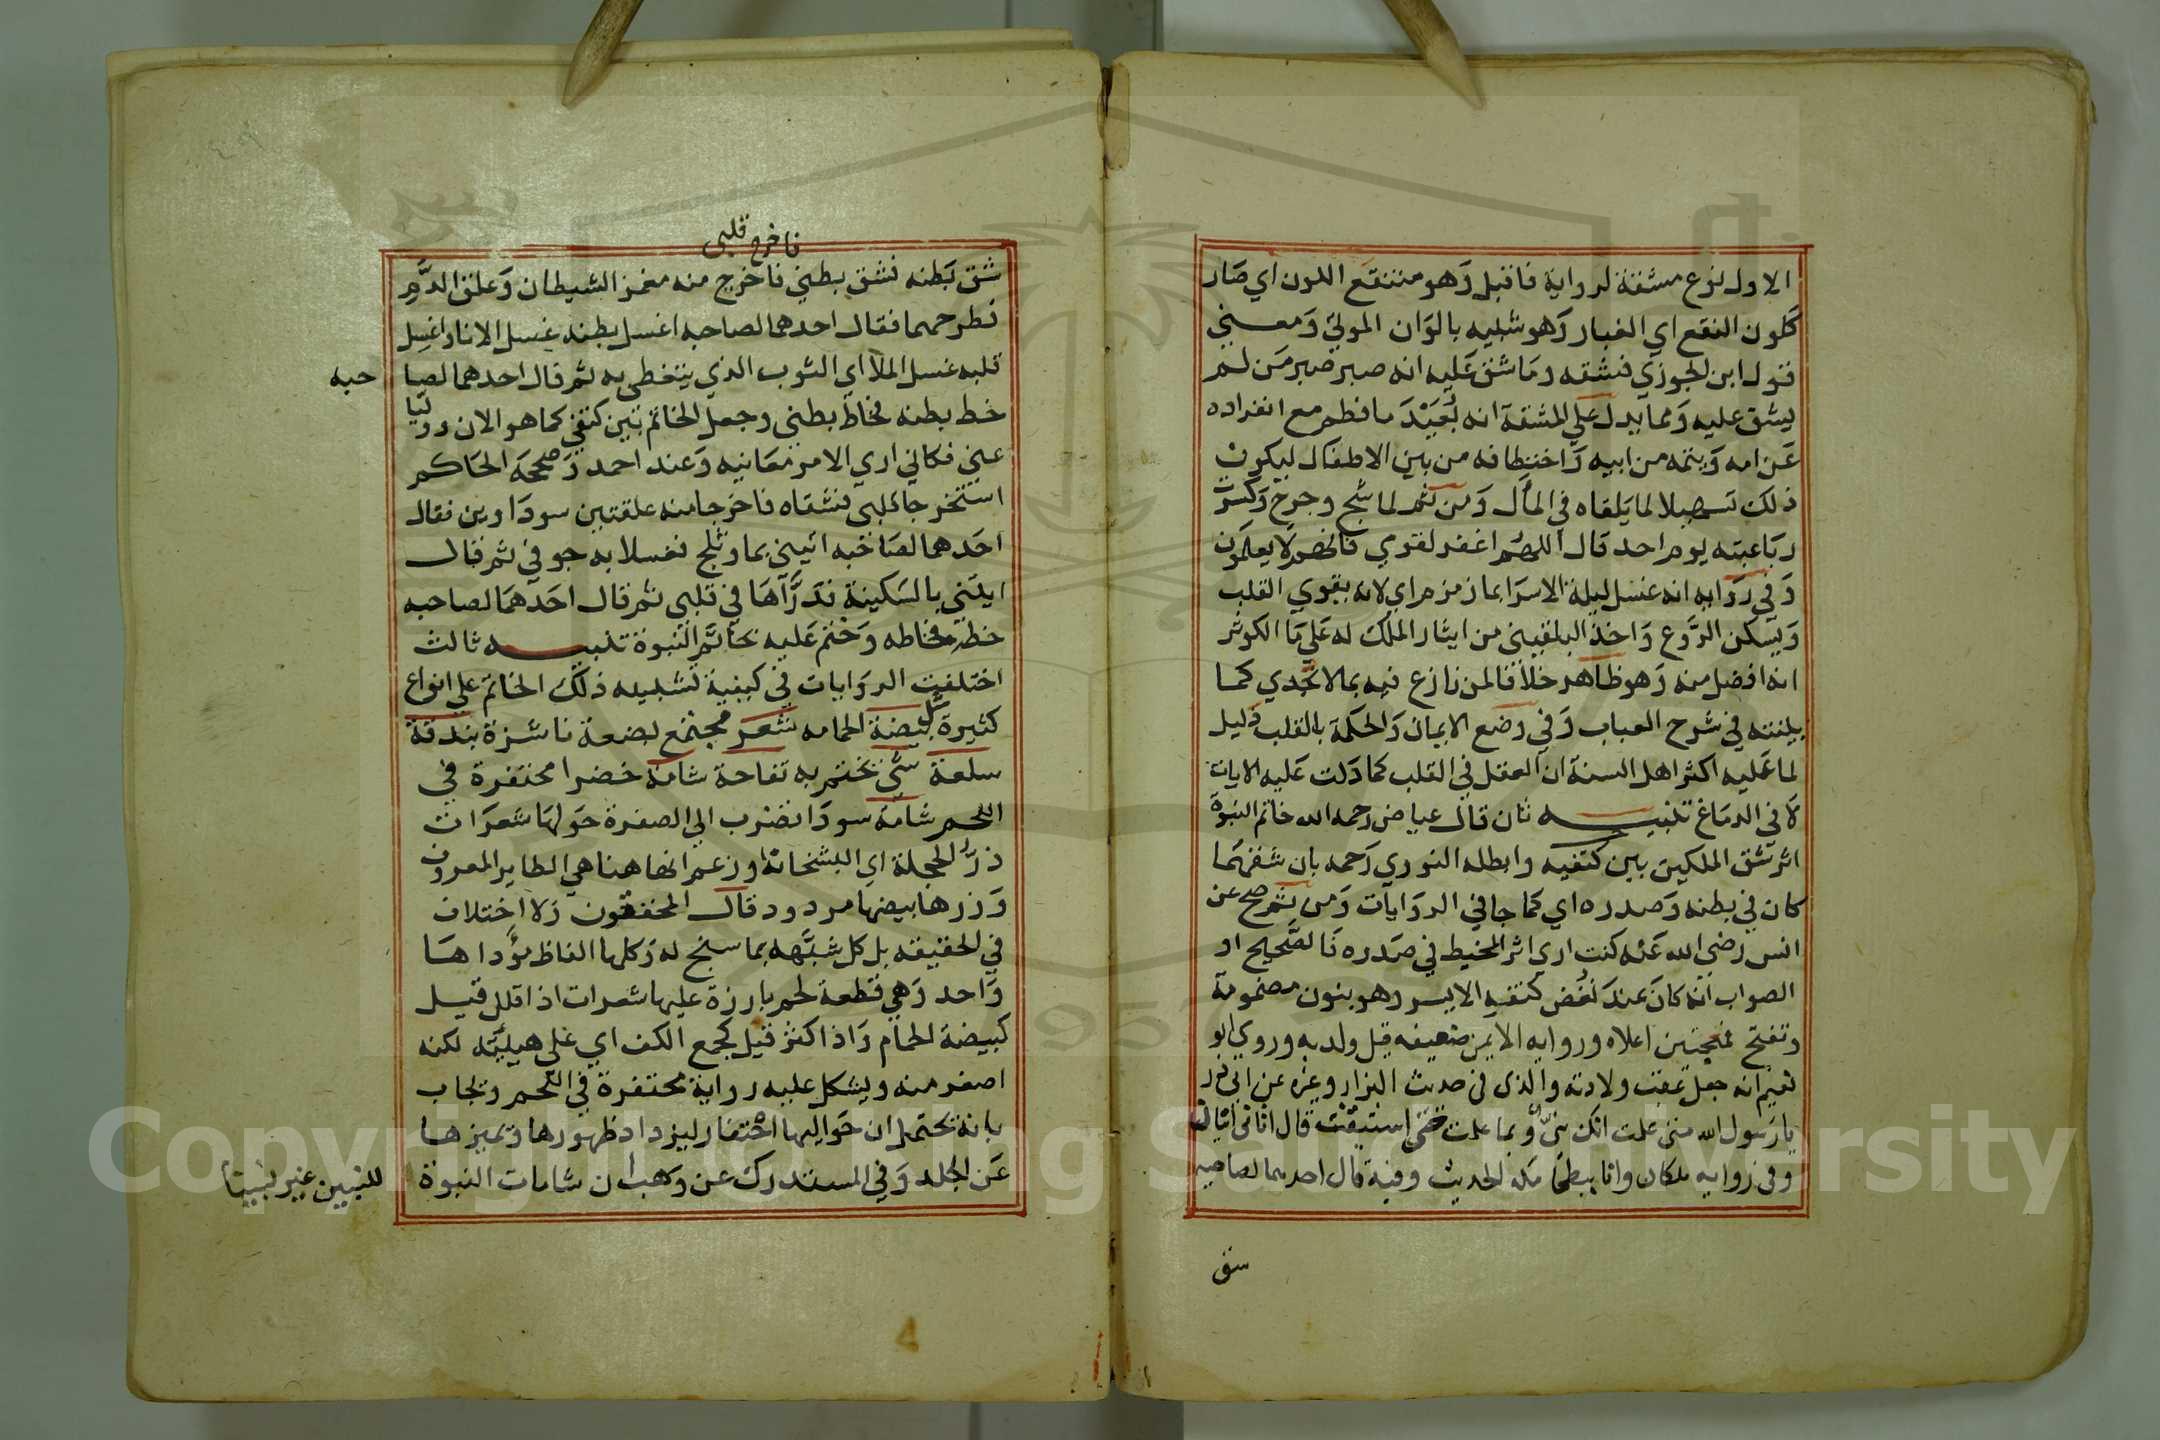 الاول نوع مشقة لرواية فاقبل وهو منتقع اللون اي صار
كلون النقع اي الغبار وهو شبيه بالوان الموتي ومعني
قول ابن الجوزي فشقه وما شق عليه انه صبر صبر من لم
يشق عليه ومما يدل علي المشقة انه بعيد ما فطم مع انفراده
عن امه ويتمه من ابيه واختطافه من بين الاطفال ليكون
ذلك تسهيلا لما يلقاه في المأل ومن ثم لما شج وجرح وكسرت
رباعيته يوم احد قال اللهم اغفر لقومي فانهم لا يعلمون
وفي روايه انه غسل ليلة الاسرا بما زمزم اي لانه يقوي القلب
ويسكن الروع واخذ البلقيني من ايثار الملك له علي ما الكوثر
انه افضل منه وهو ظاهر خلافا لمن نازع فيه بما لا يجدي كما
بينته في شرح العباب وفي وضع الايمان والحكمة بالقلب دليل
لما عليه اكثر اهل السنة ان العقل في القلب كما دلت عليه الايات
لا في الدماغ تنبيه ثان قال عياض رحمه الله خاتم النبوة
اثر شق الملكين بين كتفيه وابطله النووي رحمه بان شقهما
كان في بطنه وصدره اي كما جا في الروايات ومن ثم صح عن
انس رضي الله عنه كنت اري اثر المخيط في صدره فالصحيح او
الصواب انه كان عند نغض كتفه الايسر وهو بنون مضمومة
وتفتح فمعجمتين اعلاه وروايه الايمن ضعيفه قيل ولد به وروي ابو
نعيم انه جعل عقب ولادته والذي في حديث البزار وغيره عن ابي ذر
يا رسول الله متى علمت انك نبي وبما علمت حتى استيقنت قال اتاني اتيان
وفي روايه ملكان وانا ببطحا مكه الحديث وفيه قال احدهما لصاحبه
شق
فاخرج قلبي
شق بطنه فشق بطني فاخرج منه مغمز الشيطان وعلق الدم
فطرحهما فقال احدهما لصاحبه اغسل بطنه غسل الانا واغسل
قلبه غسل الملا اي الثوب الذي يتغطى به ثم قال احدهما لصا
حبه
خط بطنه فخاط بطني وجعل الخاتم بين كتفي كما هو الان ووليا
عني فكاني اري الامر معاينه وعند احمد وصححه الحاكم
استخرجا قلبي فشقاه فاخرجا منه علقتين سوداوين فقال
احدهما لصاحبه ائتيني بما وثلج فغسلا به جوفي ثم قال
ايتني بالسكينة فذرآها في قلبي ثم قال احدهما لصاحبه
خطه فخاطه وختم عليه بخاتم النبوة تنبيه ثالث
اختلفت الروايات في كيفية تشبيه ذلك الخاتم علي انواع
كثيرة كبيضة الحمامه شعر مجتمع بضعة ناشزة بندقة
سلعة شي يختم به تفاحة شامة خضرا محتفرة في
اللحم شامة سودا تضرب الي الصفرة حولها شعرات
زر الحجلة اي البشخانة وزعم انها هنا هي الطاير المعروف
وزرها بيضها مردود قال المحققون ولا اختلاف
في الحقيقه بل كل شبهه بما سنح له وكلها الفاظ مؤداها
واحد وهي قطعة لحم بارزة عليها شعرات اذا قلل قيل
كبيضة الحمام واذا كثر قيل كجمع الكف اي على هيئته لكنه
اصغر منه ويشكل عليه رواية محتفرة في اللحم ويجاب
بانه يحتمل ان حواليها احتفار ليزداد ظهورها وتميزها
عن الجلد وفي المستدرك عن وهب ان شامات النبوة
للنبيين غير نبينا
Copyright © King Saud University
1957